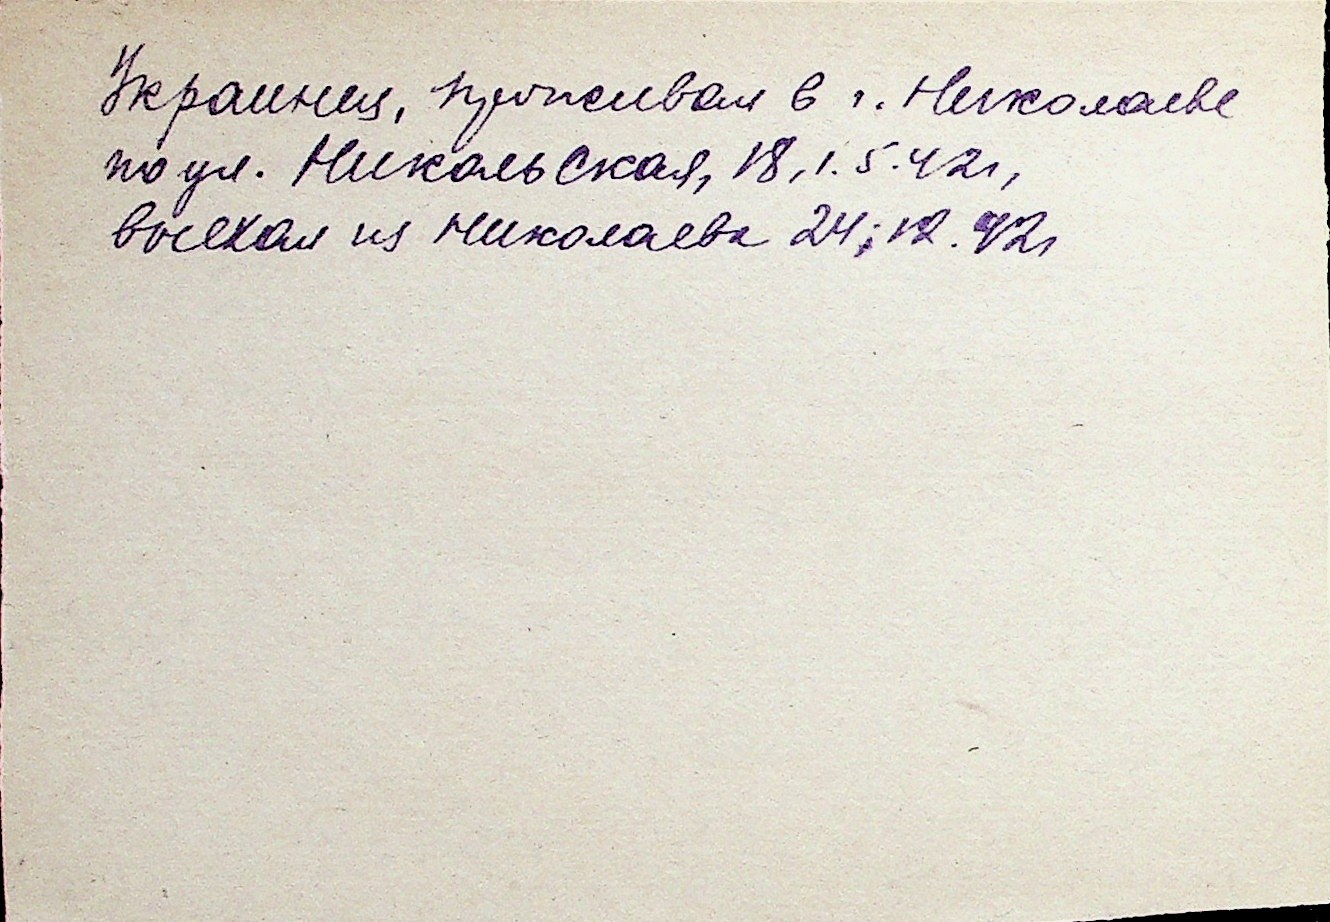 Украинец, проживал в г. Николаеве
по ул. Никольская, 18, 1.5.42г,
выехал из Николаева 24.12.42г